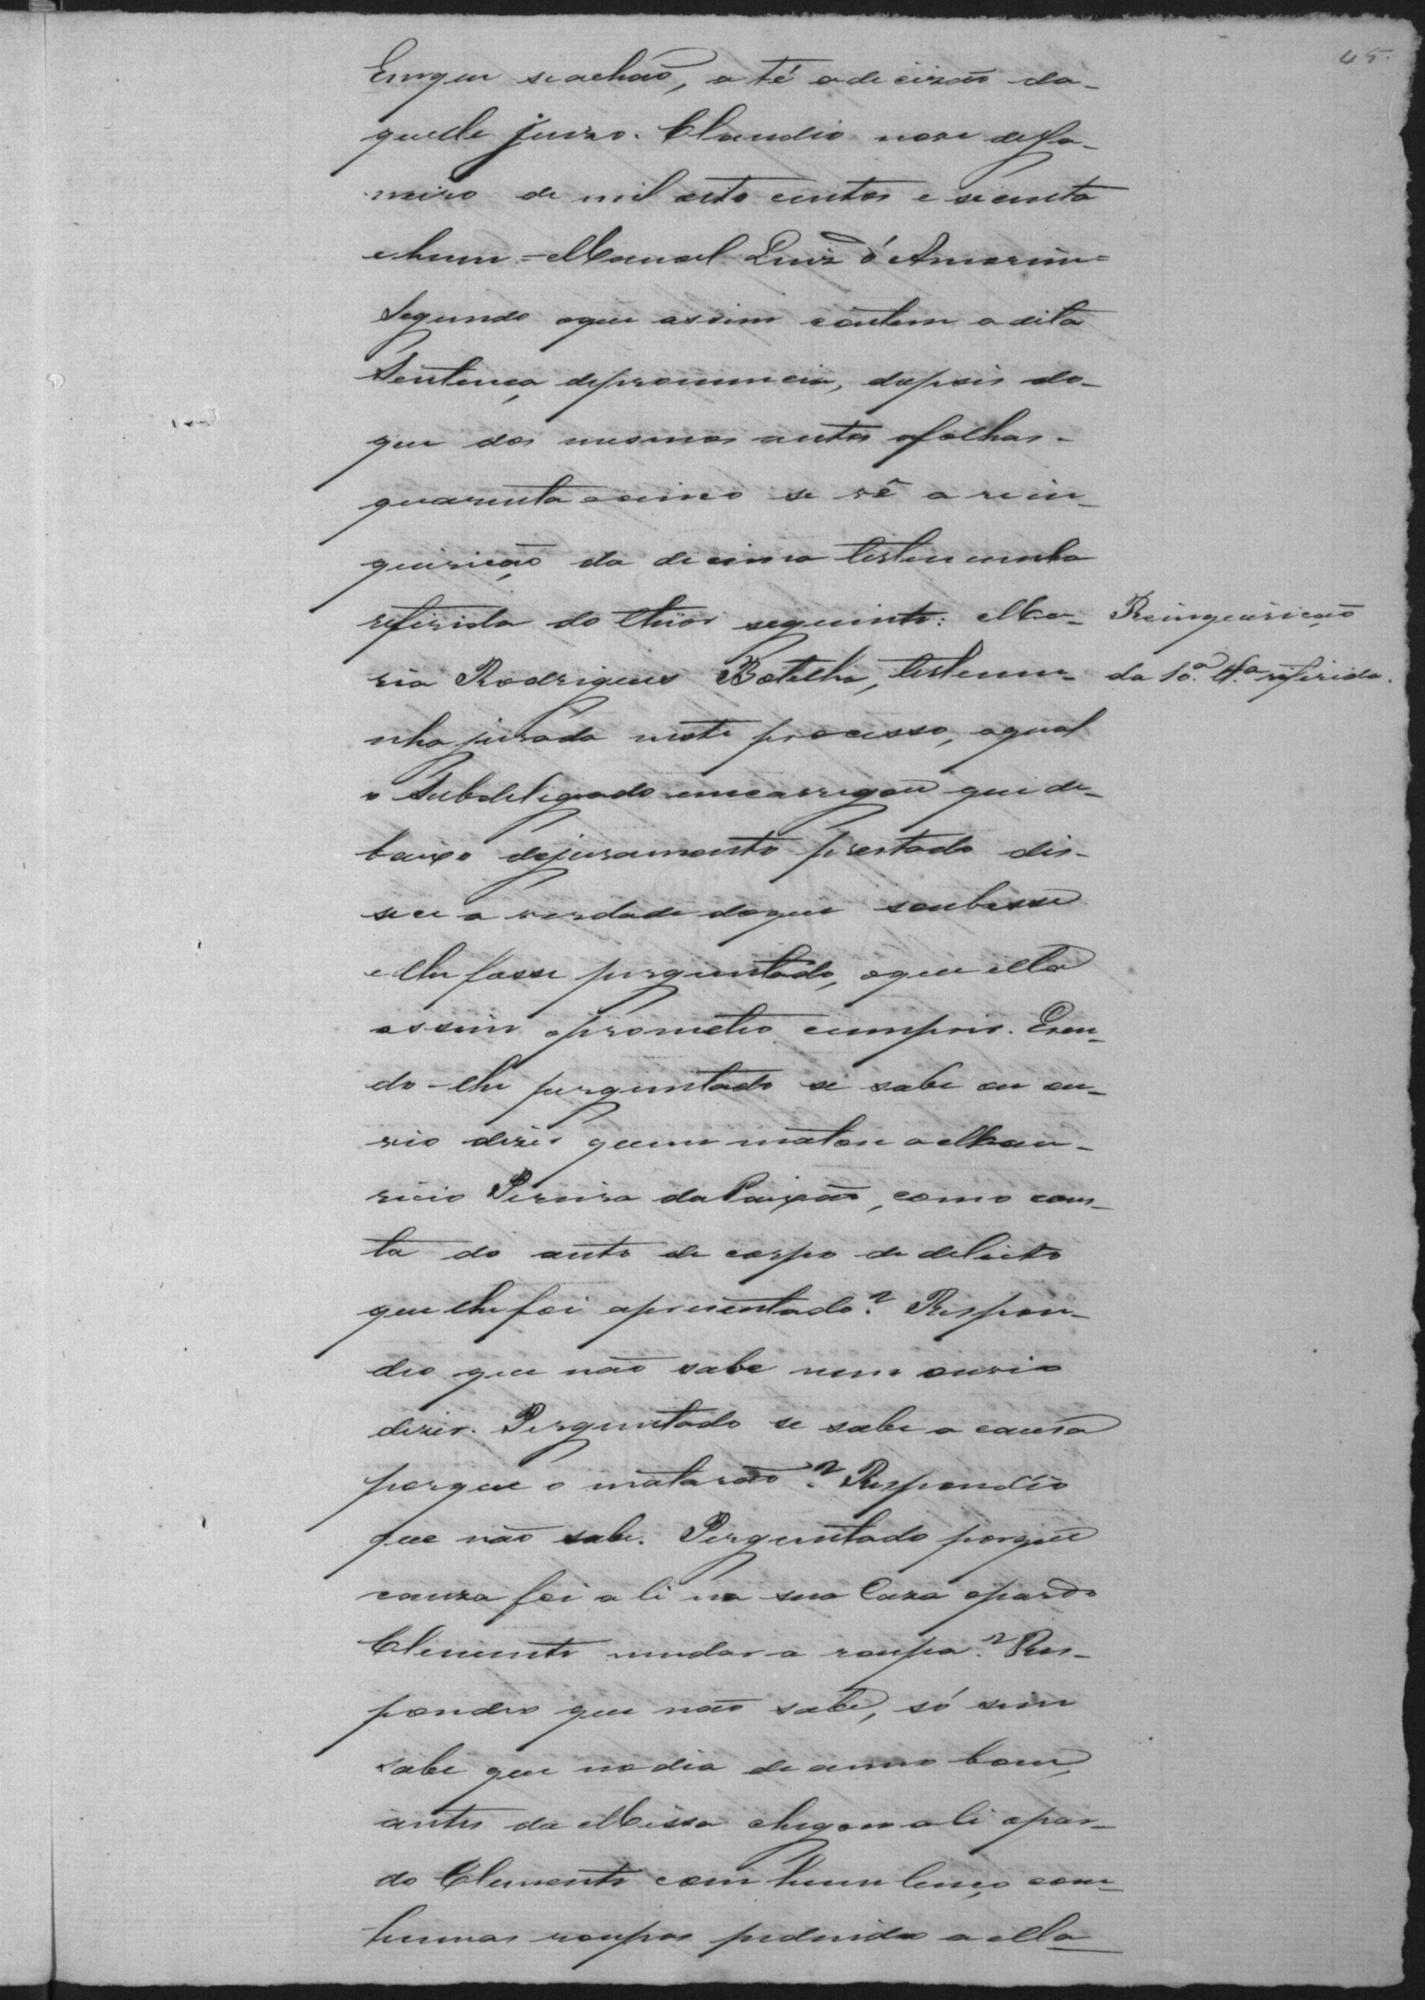 45.
Emque se achão, até a decizão da-
quelle juizo. Claudio nove de Ja-
neiro de mil oito centos e secenta
e hum = Manoel Luiz d'Amorim =
Segundo o que assim contem a dita
Sentença de pronuncia, depois do-
que dos mesmos autos a folhas-
quarenta e cinco se vê a rein-
quirição da decima testemunha
referida do thior seguinte: Ma-
ria Rodrigues Botelho, testemu-
nha jurada neste processo, a qual
o Subdelegado encarregou que de-
baixo do juramento prestado dis-
sece a verdade do que soubesse
e lhe fosse perguntado, o que ella
assim o prometeo cumprir. E sen-
do-lhe perguntado se sabe ou ou-
vio dizer quem matou a Mau-
ricio Pereira da Paixão, como cons-
ta do auto de corpo de delicto
que lhe foi apresentado? Respon-
deo que não sabe nem ouvio
dizer. Perguntado se sabe a causa
porque o matarão? Respondêo
que não sabe. Perguntado porque
cauza foi ali na sua Caza o pardo
Clemente mudar a roupa? Res-
pondeo que não sabe, só sim
sabe que no dia de anno bom,
antes da Missa chegou ali o par-
do Clemente com hum lenço com
humas roupas pedindo a ella
Reinquirição
da 10ª. tª. referida.